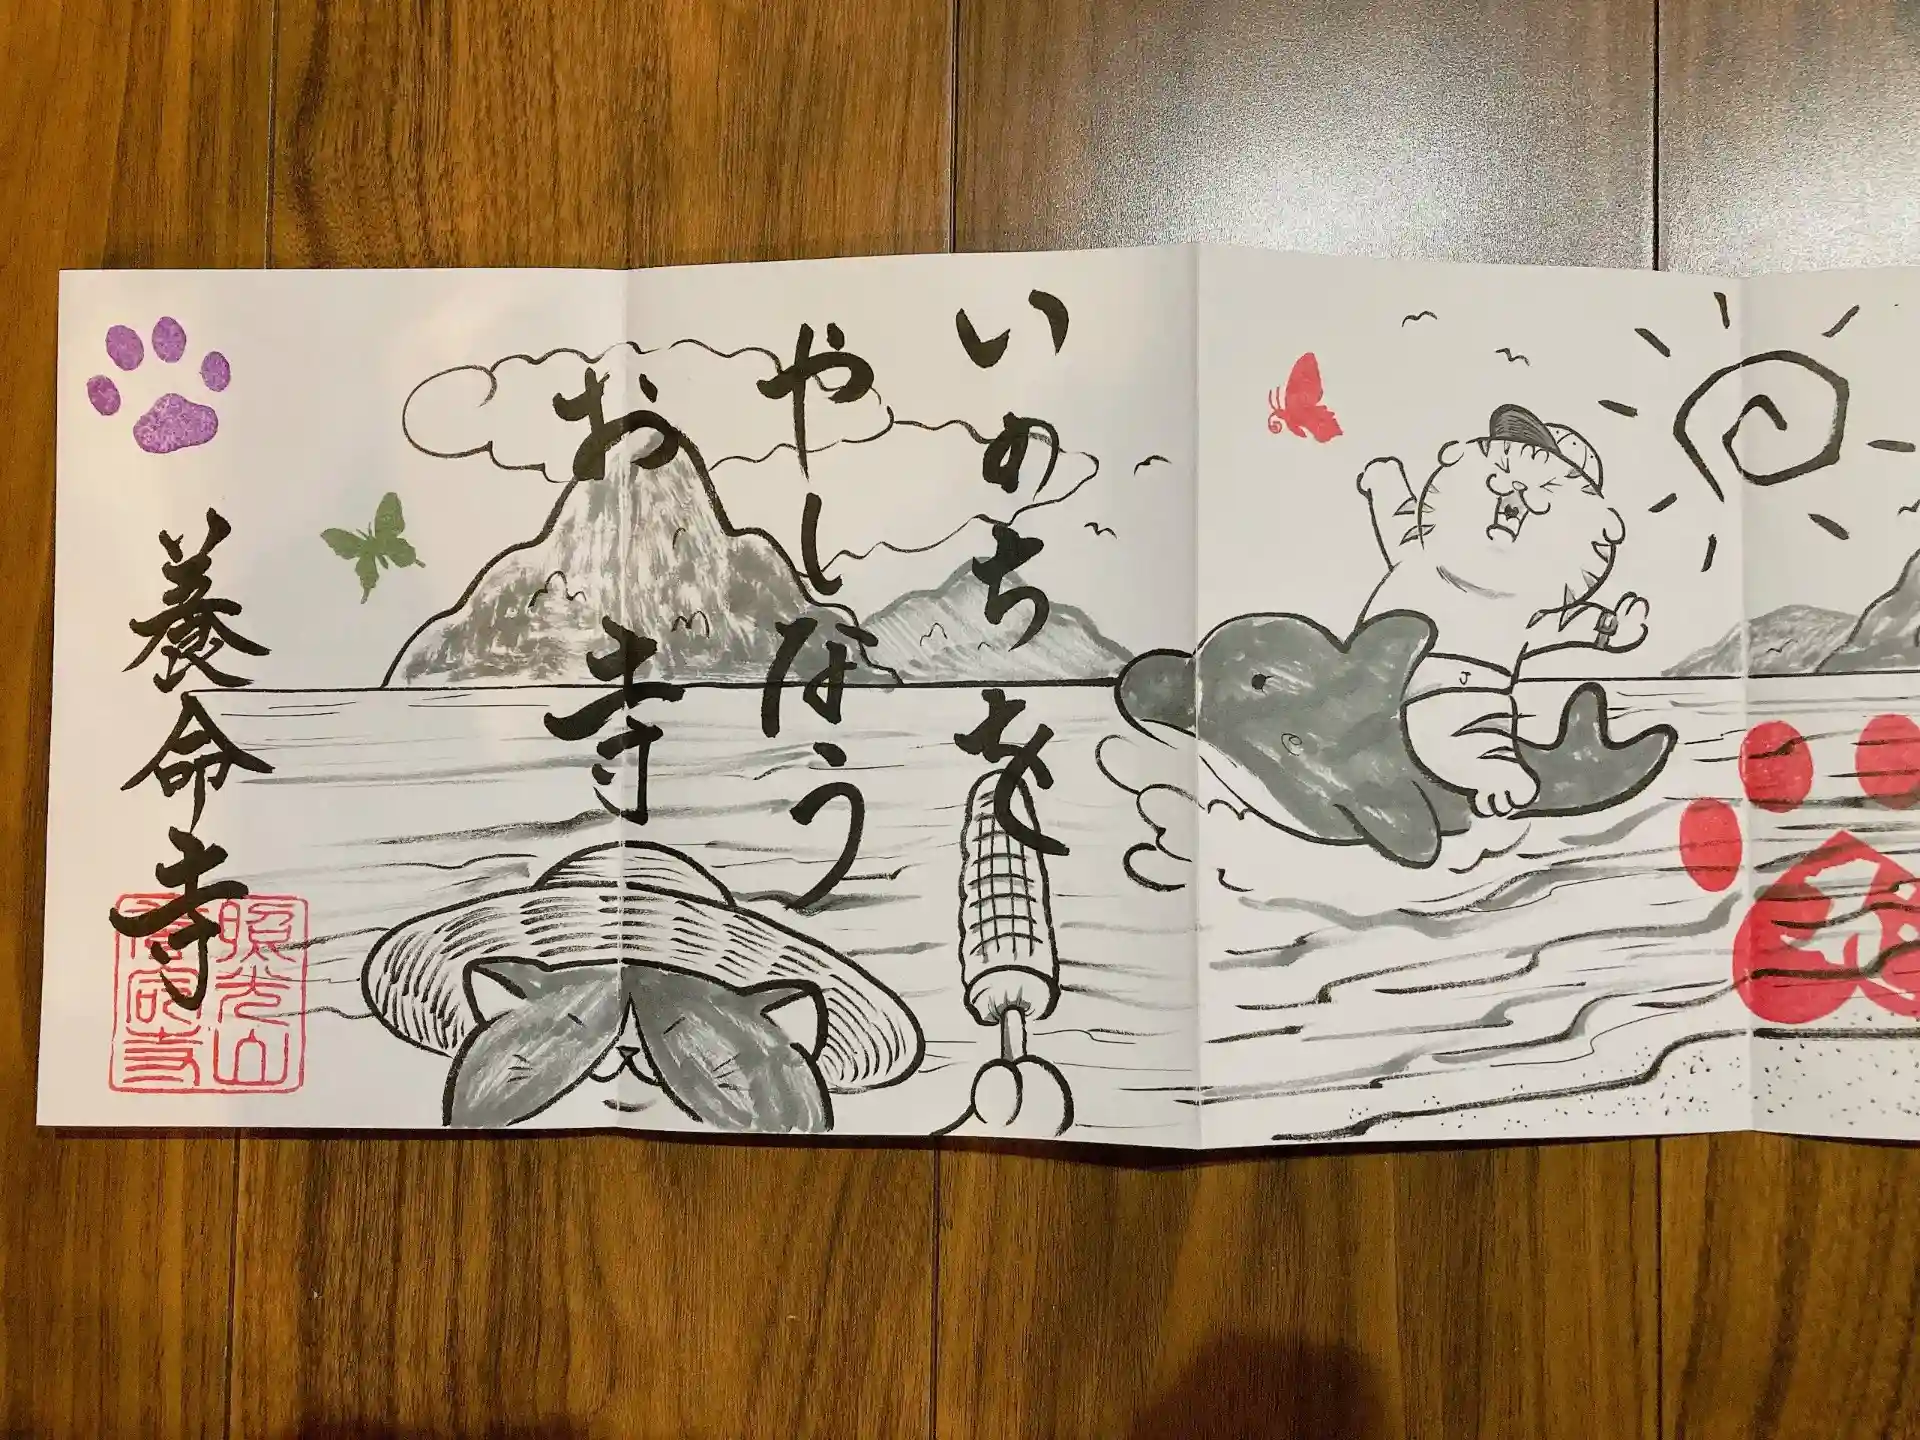 いのちを
やしなう
お寺
養命寺
照光山
養命寺